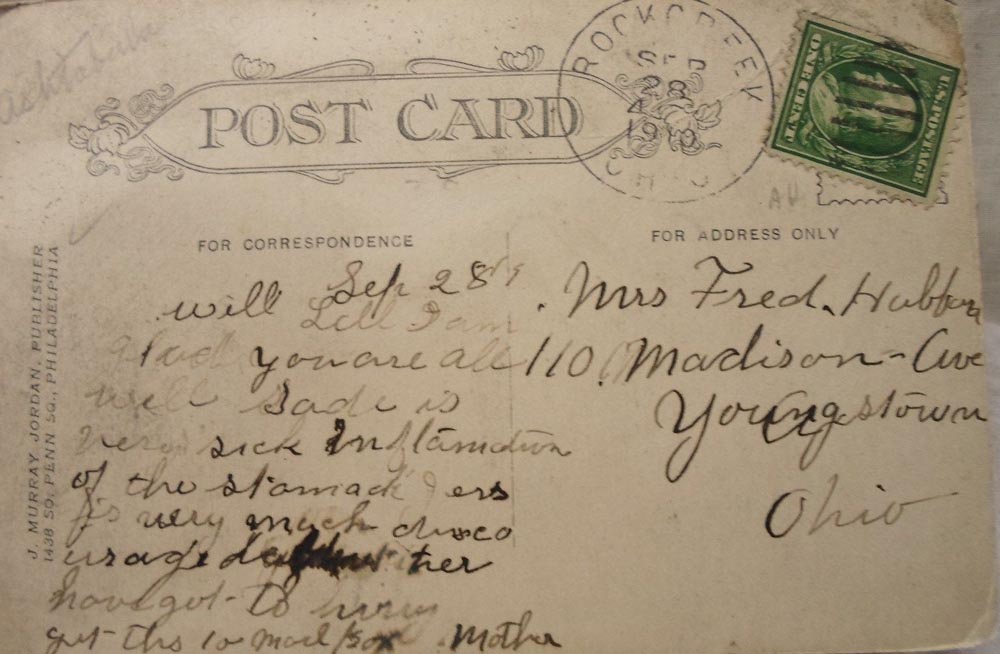 Ashtabula
POST CARD
ROCK CREEK
SEP
28
4
1910
OHIO
ONE CENT
U.S. POSTAGE
AU
FOR CORRESPONDENCE
FOR ADDRESS ONLY
J. MURRAY JORDAN, PUBLISHER
1438 SO. PENN SQ., PHILADELPHIA
Sep 28
will Lell I am
glad you are all
well Sade is
very sick Inflamation
of the stomack
is very much disco
uraged her
have got to hurry
get ths to mail box Mother
Mrs Fred. Hubbard
110. Madison-Ave
Youngstown
Ohio